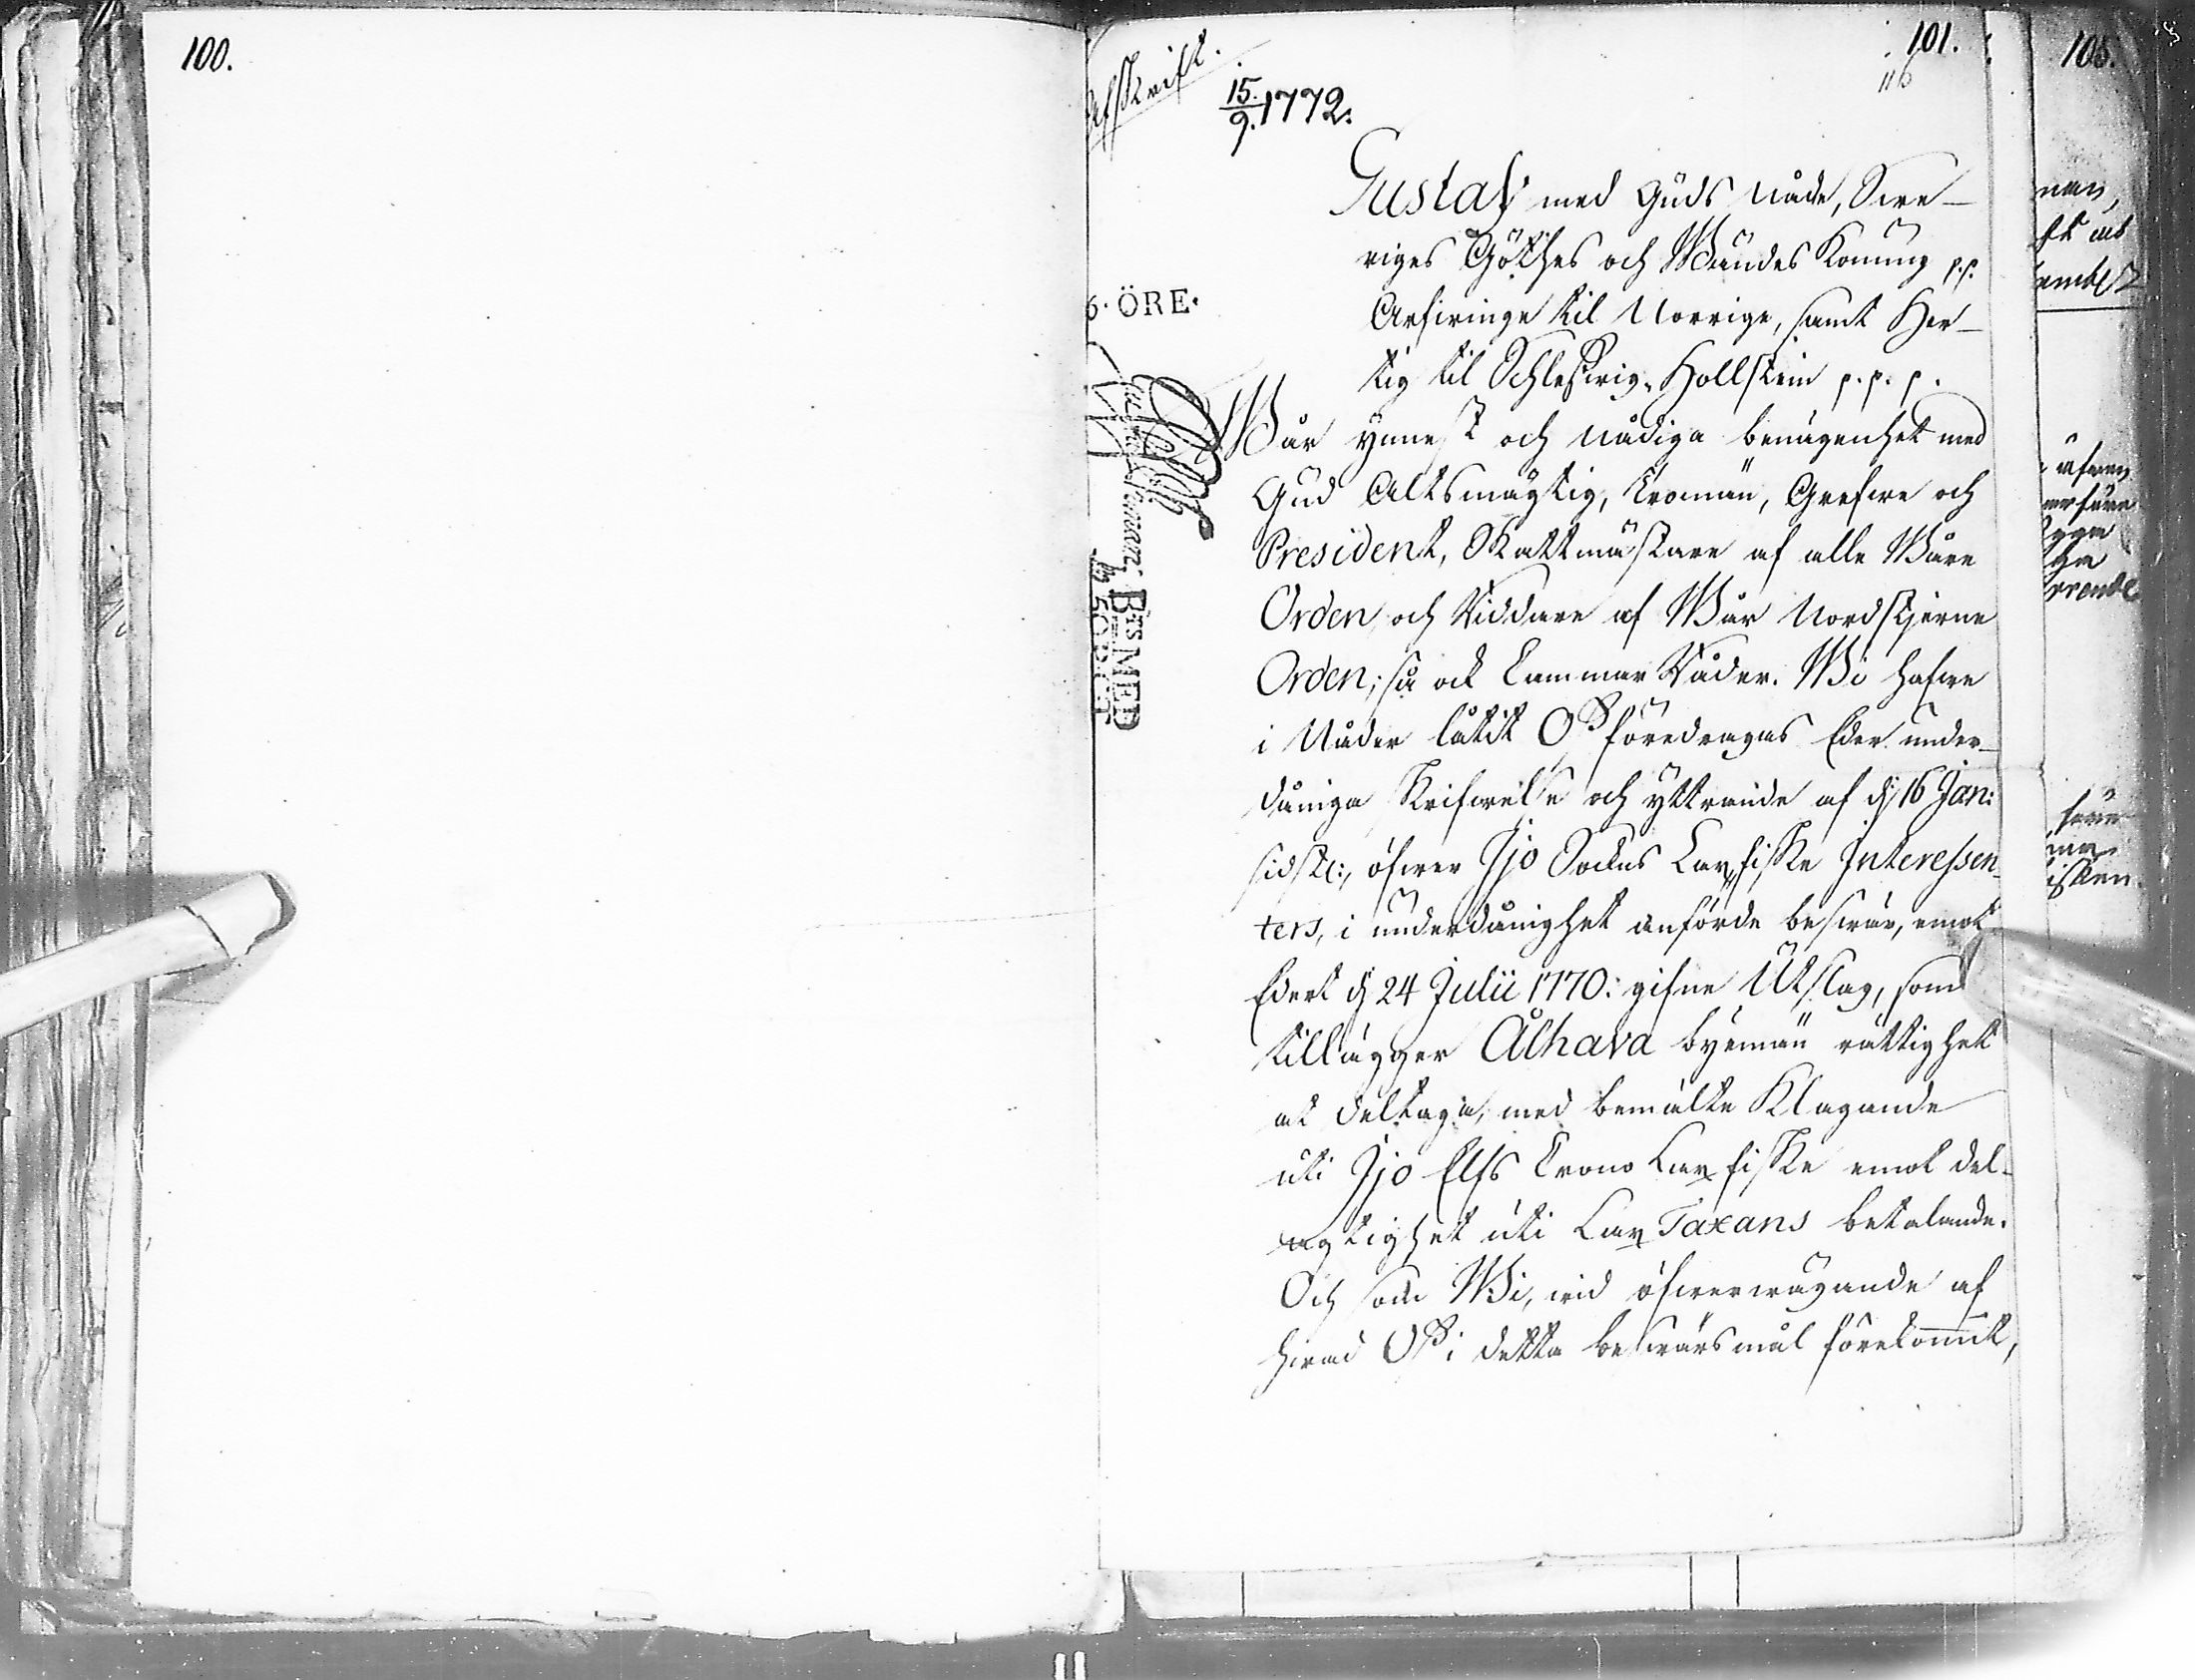 100.
101.
Afskrift.
15/9. 1772.
6. ÖRE.
Gustaf med Guds Nåde, Swe-
riges Göthes och Wendes Konung p.p.
Arfwinge til Norrige, samt Her-
tig til Schleswig-Hollstein p. p. p.
Wår ynnest och nådiga benägenhet med
Gud Altsmägtig, Troman, Grefwe och
President, Skattmästare af alle Wåre
Orden, och Riddare af Wår Nordstjerne
Orden; så ock Cammar Råder. Wi hafwe
i Nåder låtit Oß föredragas Eder under-
dåniga Skrifwelse och yttrande af d. 16 Jan:
sidstl:, öfwer Jjo Sockns Laxfiske Interessen-
ters, i underdånighet anförde beswär, emot
Edert d. 24 Julii 1770: gifne Utslag, som
tillägger Alhava byemän rättighet
at deltaga, med bemälte Klagande
uti Jjo Elfs Crono Laxfiske emot del-
agtighet uti Lax Taxans betalande.
Och som Wi, wid öfwerwägande af
hwad Oß i detta beswärsmål förekommit,